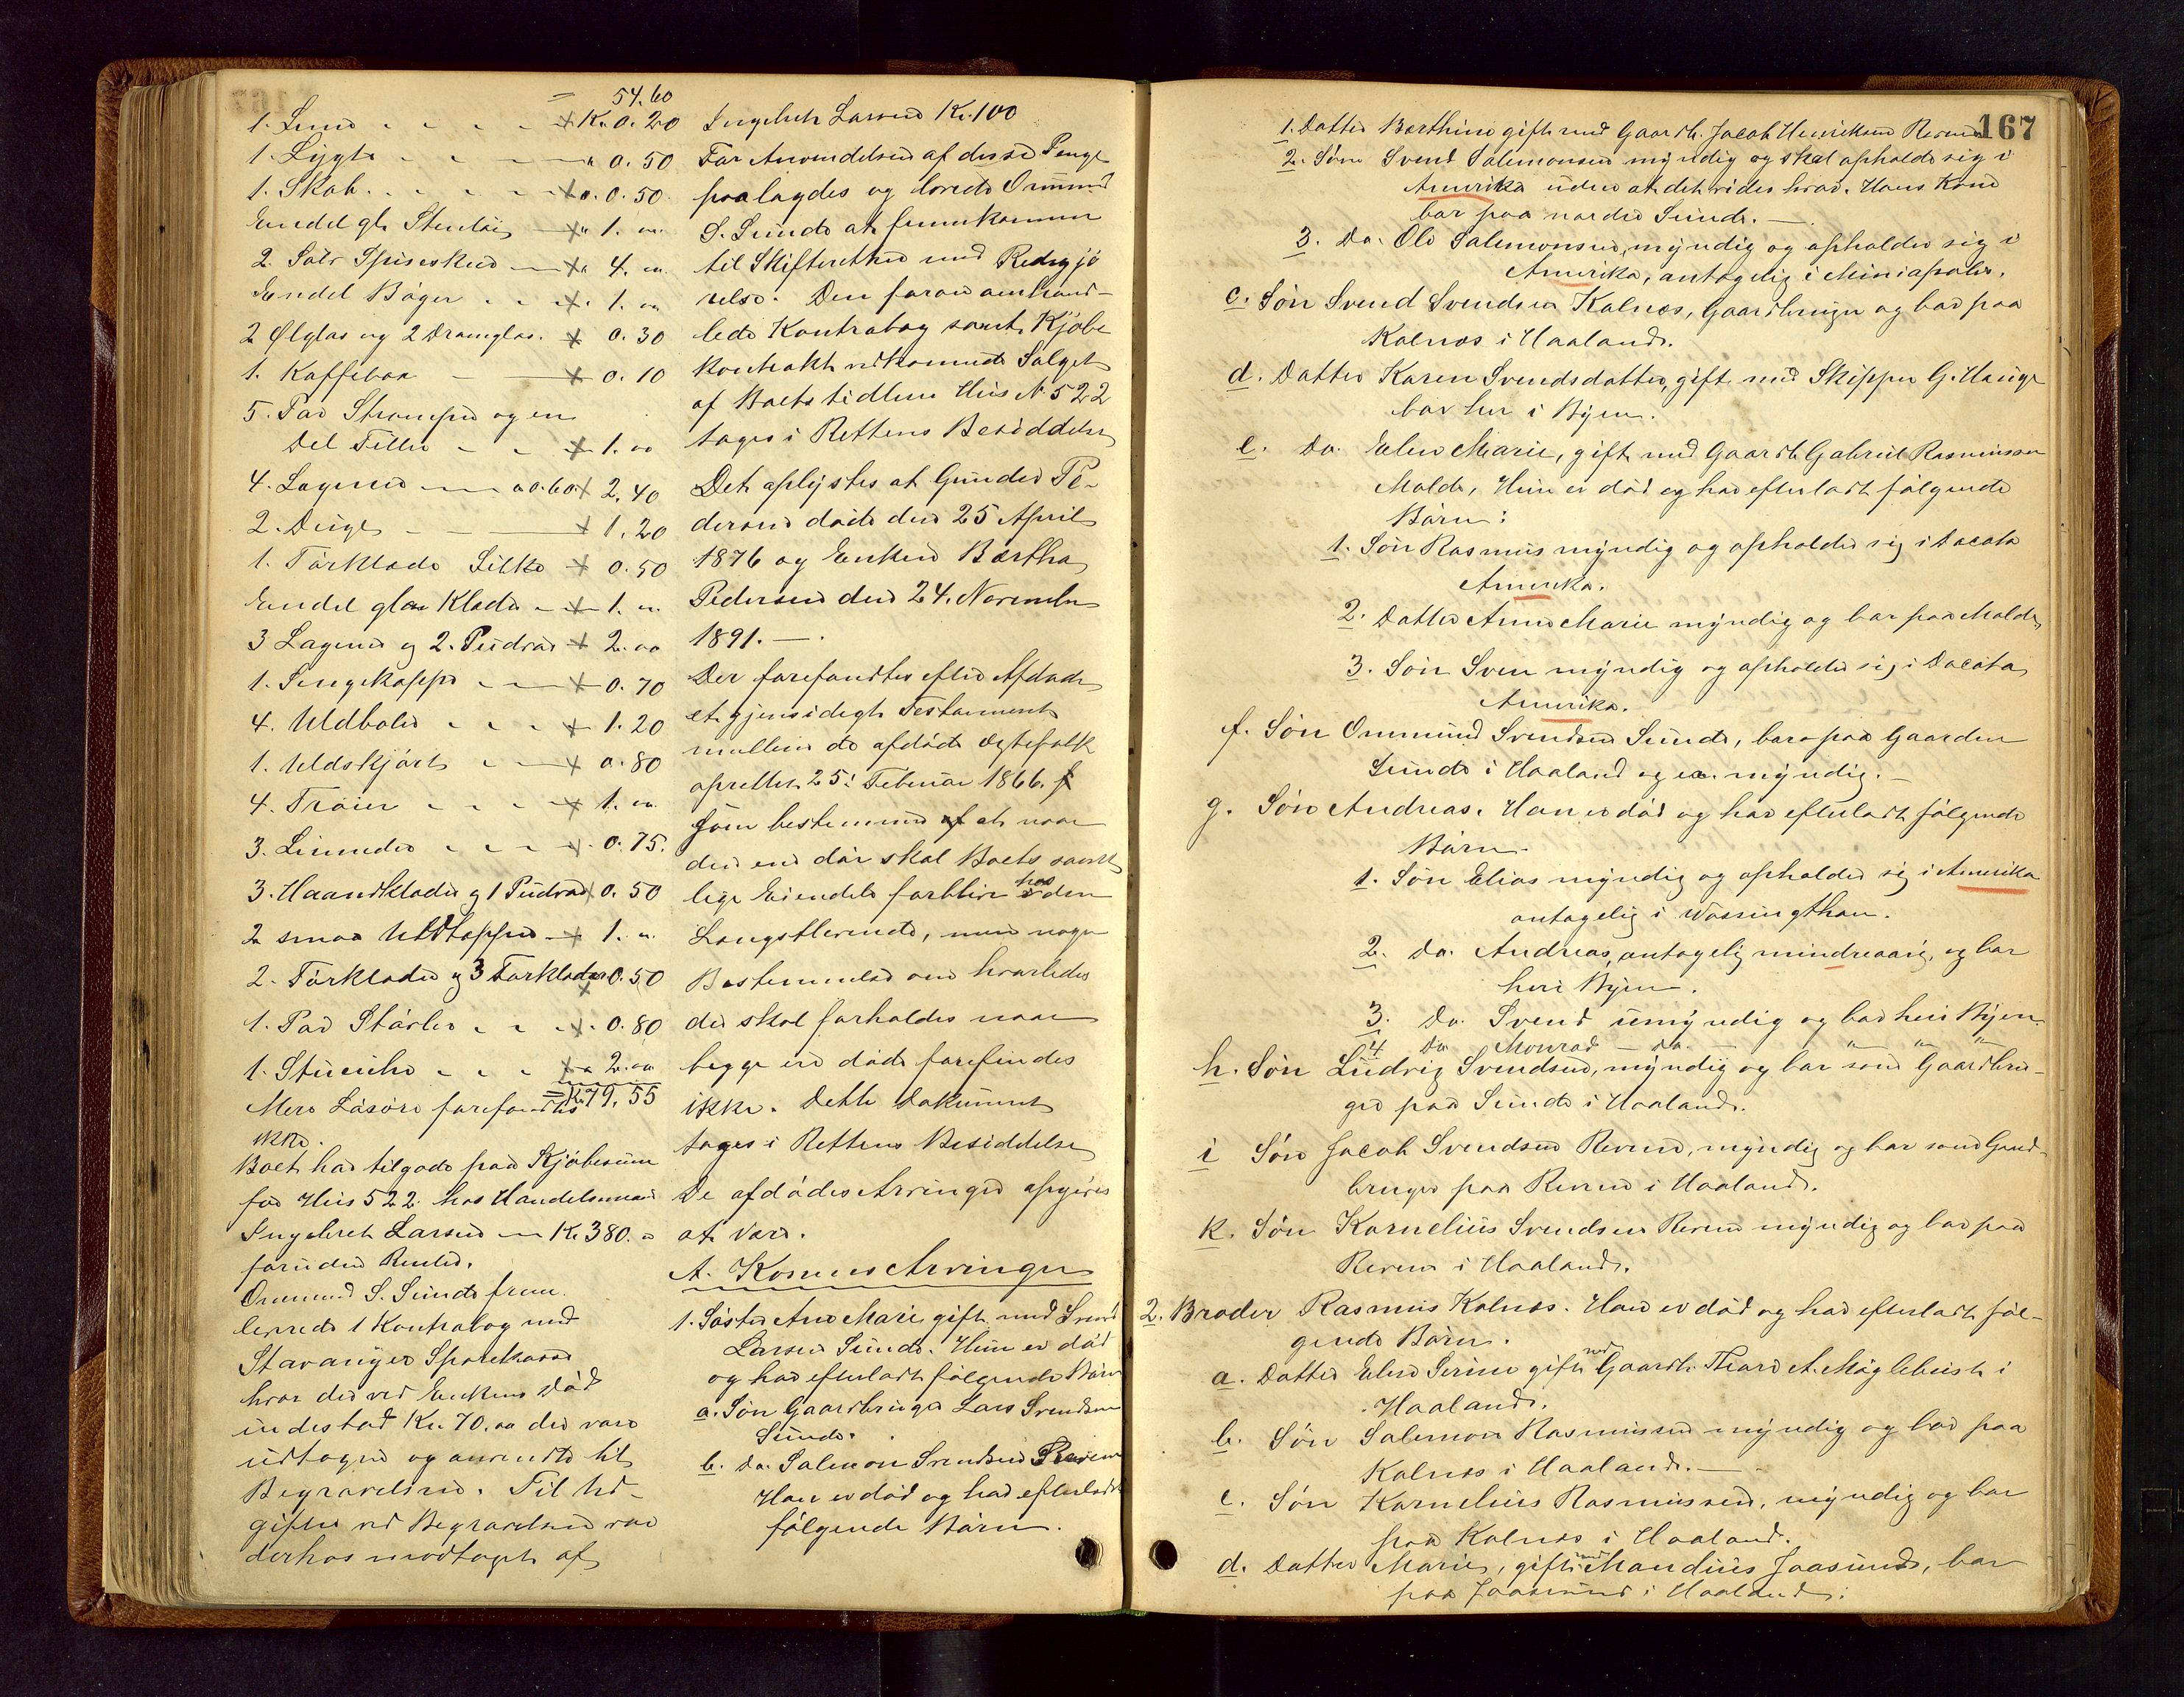 = 54.60
1. Lune - - - - Kr. 0.20
1. Lygte - - - - " 0.50
1. Skab. - - - - " 0.50
Endel gl. Stentøi - " 1. "
2 Sølv Spiseskeer - " 4. "
Endel Bøger - - " 1. "
2 Ølglas og 2 Dramglas. 0.30
1. Kaffebræt - 0.10
5. Par Strømper og en
Del Filler - - 1. "
4. Lagener - a 0.60. 2.40
2. Duge - 1.20
1. Tørklæde Silke 0.50
Endel gle Klæder - 1. "
3 Lagener og 2. Pudevar 2. "
1. Sengekappe - - 0.70
4. Uldboler - - - 1.20
1. Uldskjørt - - 0.80
4. Trøier - - - 1. "
3. Linneder - - - 0.75.
3. Haandklæder og 1 Pudevar 0.50
2 smaa Uldtæpper - 1. "
2. Forklæder og 3 Tørklæder 0.50
1. Par Støvler - - - 0.80
1. Stueuhr - - - " 2. "
= Kr. 79.55
Mere Løsøre forefandtes
ikke.
Boet har tilgode paa Kjøbesum
for Hus 522 hos Handelsmand
Ingebret Larsen - Kr 380. "
foruden Renter.
Ommund S. Sunde frem-
leverede 1 Kontrabog med
Stavanger Sparekasse
hvor der ved Enkens Død
indestod Kr. 70. " der vare
udtagne og anvendte til
Begravelsen. Til Ud-
gifter ved Begravelsen var
derhos modtaget af
Ingebret Larsen Kr. 100
For Anvendelsen af disse Penge
paalagdes og lovede Ommund
S. Sunde at fremkomme
til Skifteretten med Redegjø
relse. Den foran omhand-
lede Kontrabog samt Kjøbe
kontrakt vedkommende Salget
af Boets tidligere Hus No 522
toges i Rettens Besiddelse
Det oplystes at Gunder Pe-
dersen døde den 25 April
1876 og Enken Bertha
Pedersen den 24. November
1891. -
Der forefandtes efter Afdøde
et gjensidigt Testament
mellem de afdøde Ægtefolk
oprettet 25. Februar 1866.
som bestemmer at naar
den ene dør skal Boets samt
lige Eiendele forblive hos den
Længstlevende, men nogen
Bestemmelse om hvorledes
der skal forholdes naar
begge ere døde forefindes
ikke. Dette Dokument
toges i Rettens Besiddelse
De afdødes Arvinger opgives
at være.
A. Konens Arvinger
1. Søster Ane Marie gift med Svend
Larsen Sunde. Hun er død
og har efterladt følgende Børn
a. Søn Gaardbruger Lars Svendsen
Sunde.
b. Do. Salemon Svendsen Revem
Han er død og har efterladt
følgende Børn.
167
1. Datter Berthine gift med Gaardb. Jacob Henriksen Reveme
2. Søn Svend Salemonsen myndig og skal opholde sig i
Amerika uden at det vides hvor. Hans Kone
bor paa nordre Sunde. -
3. Do. Ole Salemonsen, myndig og opholder sig i
Amerika, antagelig i Miniapolis.
c. Søn Svend Svendsen Kalnæs, Gaardbruger og bor paa
Kalnæs i Haaland.
d. Datter Karen Svendsdatter, gift med Skipper G. Hauge
bor her i Byen.
e. Do. Elen Marie, gift med Gaardb. Gabriel Rasmussen
Molde, Hun er død og har efterladt følgende
Børn:
1. Søn Rasmus myndig og opholder sig i Dacota
Amerika.
2. Datter Anne Marie myndig og bor paa Molde,
3. Søn Sven myndig og opholder sig i Dacota
Amerika.
f. Søn Ommund Svendsen Sunde, bor paa Gaarden
Sunde i Haaland og er myndig. -
g. Søn Andreas. Han er død og har efterladt følgende
Børn.
1. Søn Elias myndig og opholder sig i Amerika
antagelig i Wassingthon.
2. Do. Andreas, antagelig mindreaarig, og bor
her i Byen.
3. Do. Svend umyndig og bor her i Byen.
4 Do. Monrad - do. - " " "
h. Søn Ludvig Svendsen, myndig og bor som Gaardbru-
ger paa Sunde i Haaland.
i Søn Jacob Svendsen Reveme, myndig og bor som Gaard-
bruger paa Reveme i Haaland.
k. Søn Kornelius Svendsen Reveme myndig og bor paa
Reveme i Haaland.
2. Broder Rasmus Kalnæs. Han er død og har efterladt føl-
gende Børn.
a. Datter Elen Serine gift med Gaardb. Thore A. Møglebust i
Haaland.
b. Søn Salemon Rasmussen myndig og bor paa
Kalnæs i Haaland. -
c. Søn Kornelius Rasmussen, myndig og bor
paa Kalnæs i Haaland.
d. Datter Marie, gift med Mandius Jaasund, bor
paa Jaasund i Haaland.